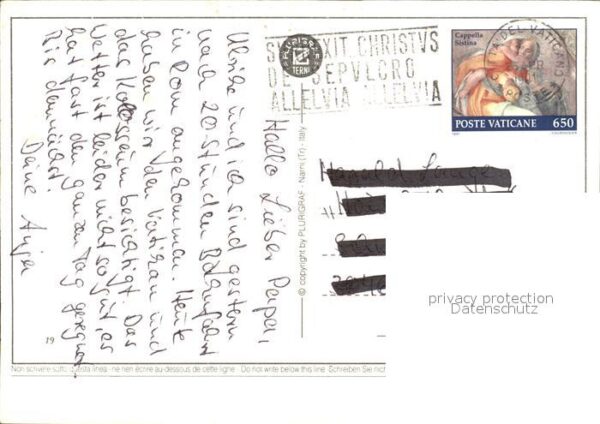 Hallo Lieber Papa,
Ulrike und ich sind gestern
nach 20-stunden Bahnfahrt
in Rom angekommen. Heute
haben wir den Vatikan und
das Kolosseum besichtigt. Das
Wetter ist leider nicht so gut, es
hat fast den ganzen Tag geregnet.
Bis demnächst.
Deine Anja
PLURIGRAF
TERNI
© copyright by PLURIGRAF - Narni (Tr) - Italy
EXIT CHRISTVS
DE SEPVLCRO
ALLELVIA ALLELVIA
Cappella
Sistina
POSTE VATICANE 650
privacy protection
Datenschutz
19
Non scrivere sotto questa linea - ne rien écrire au-dessous de cette ligne - Do not write below this line - Schreiben Sie nich